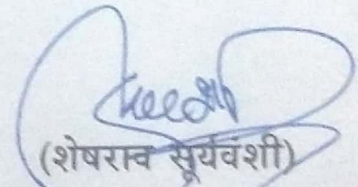 (शेषराव सूर्यवंशी)